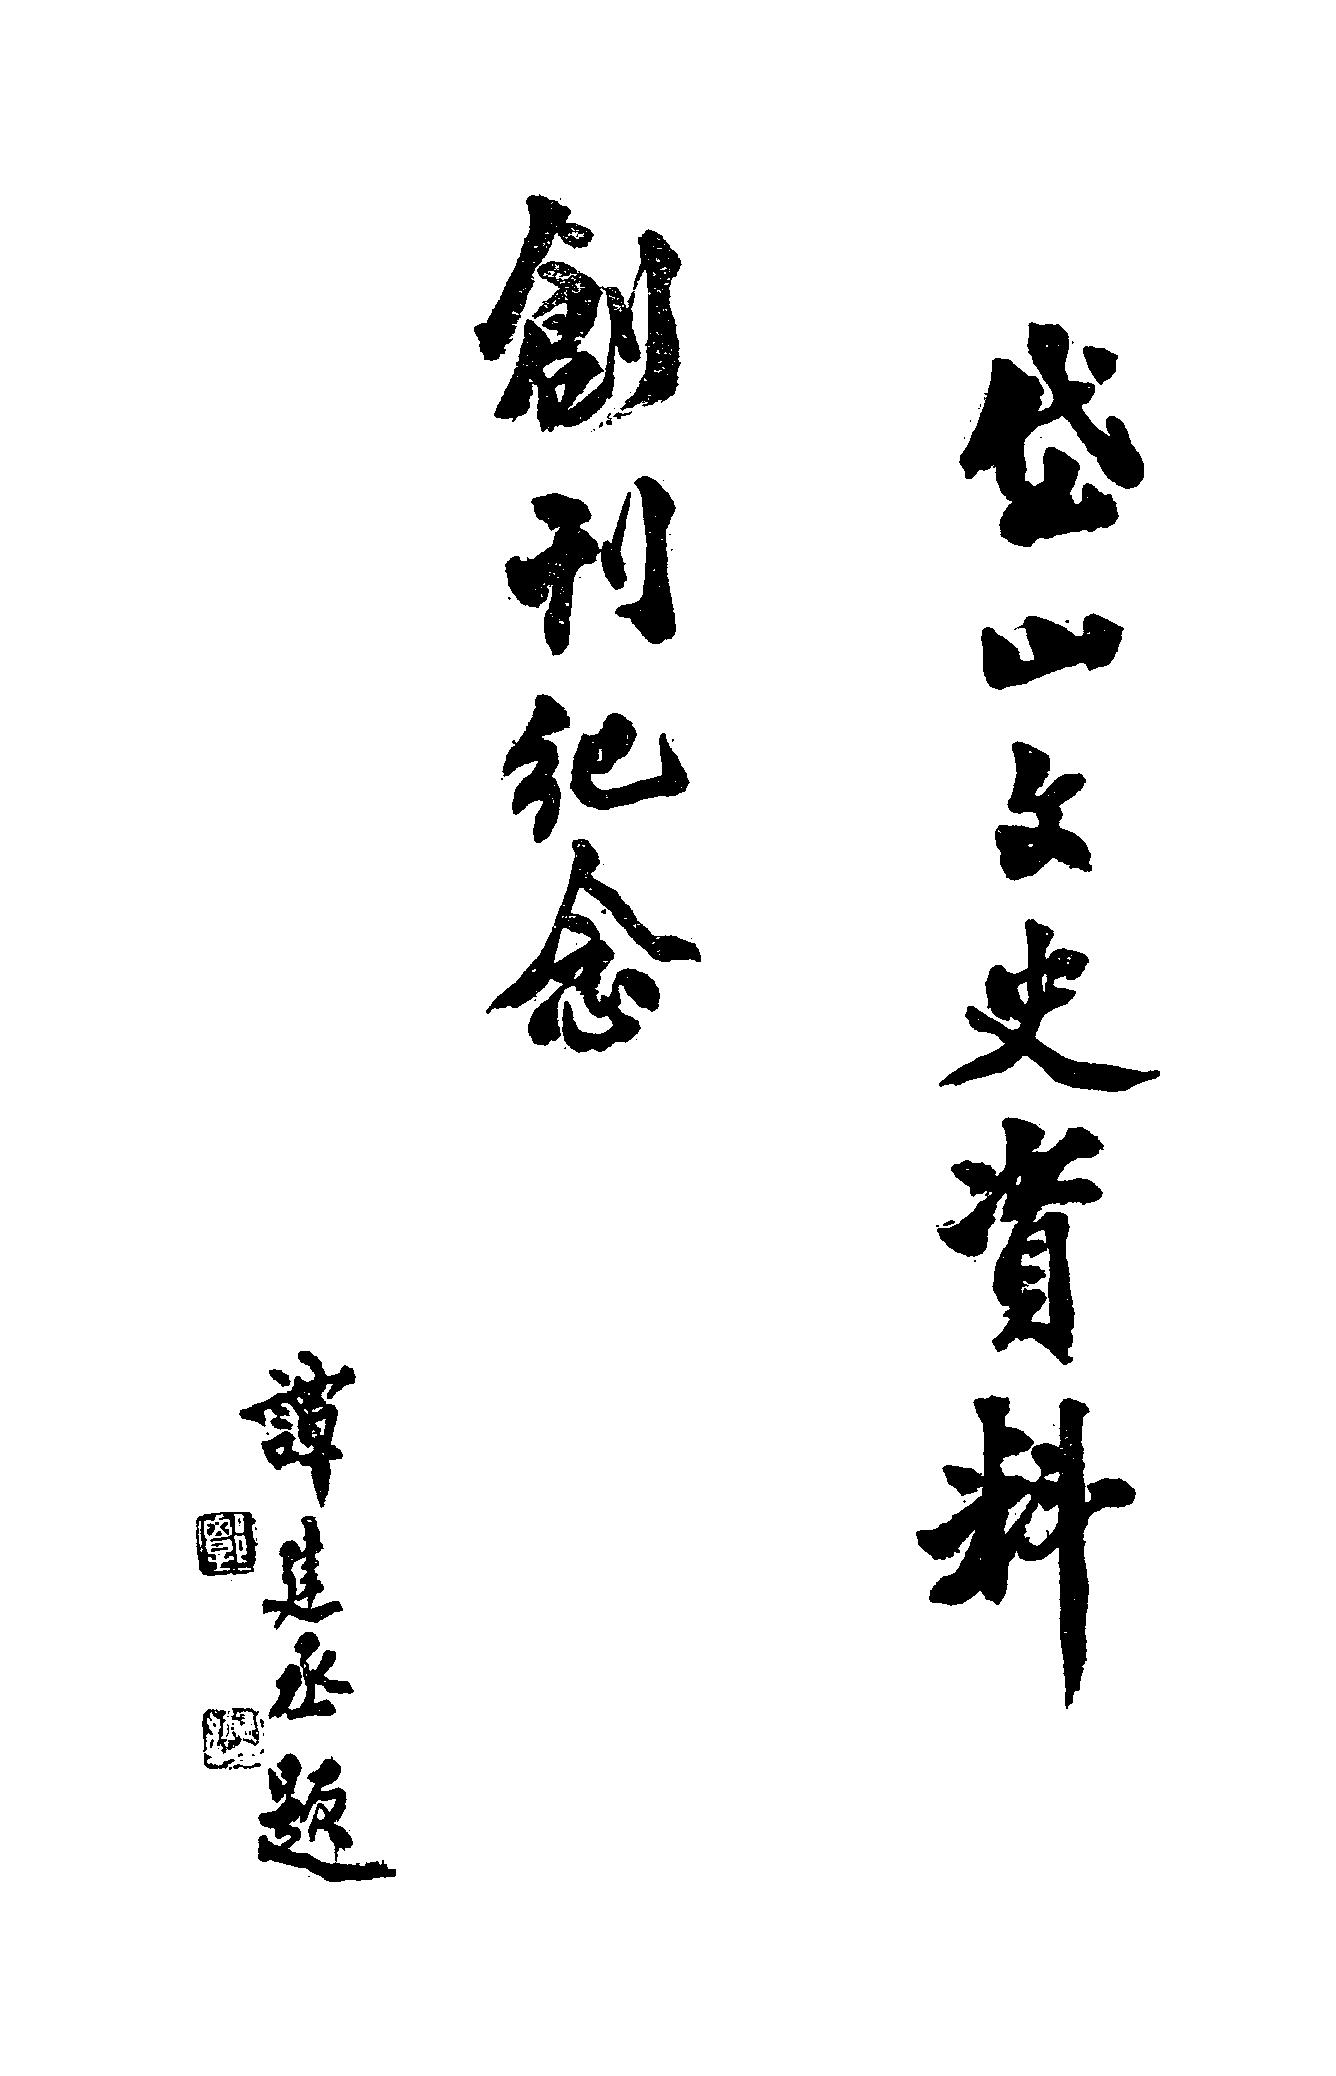 岱山文史資料
創刊紀念
譚建丞題